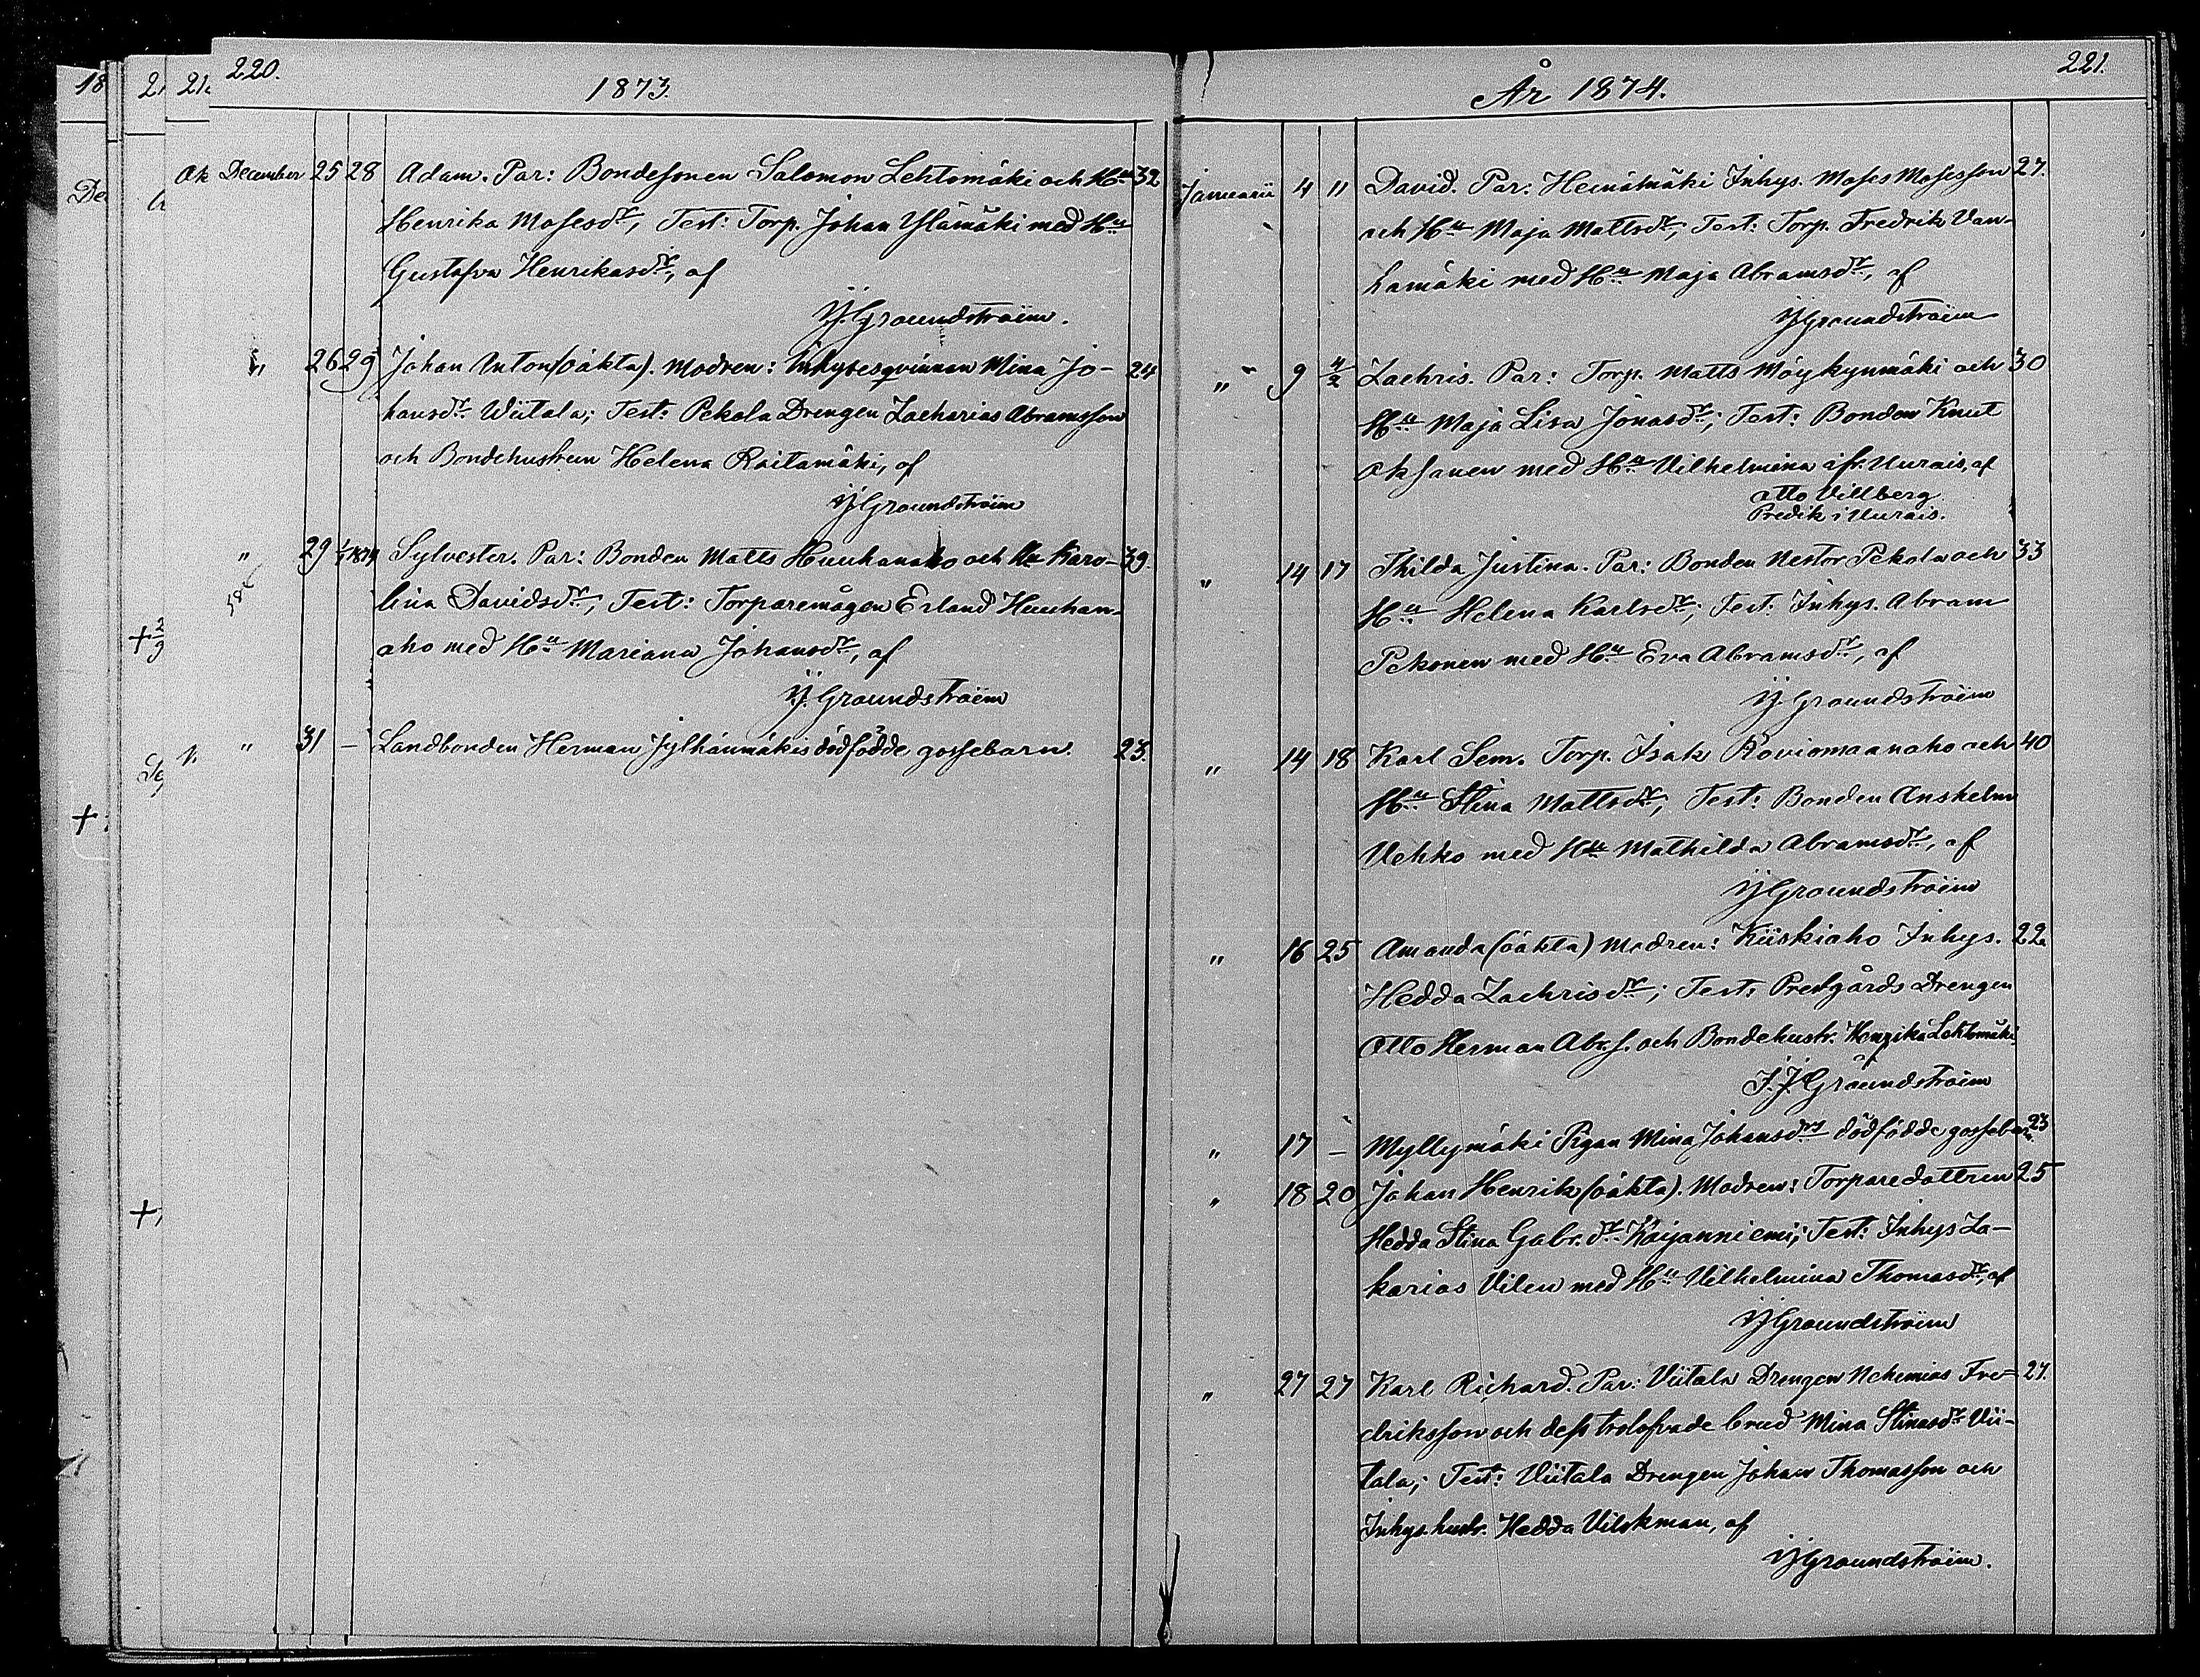 220.
1873.
December 25 28 Adam. Par: Bondesonen Salomon Lehtomäki och Hu 32
Henrika Mosesdr, Test: Torp. Johan Ylämäki med Hu
Gustafva Henriksdr, af
J. J. Groundstroëm.
" 26 29 Johan Anton (oäkta). Modren: Inhysesqvinnan Mina Jo- 24
hansdr Viitala; Test: Pekola Drengen Zacharias Abramsson
och Bondehustrun Helena Raitamäki, af
J. J. Groundstroëm
" 29 1/1 1874 Sylvester. Par: Bonden Matts Huuhanaho och Hu Karo- 39.
lina Davidsdr, Test: Torparemågen Erland Huuhan-
aho med Hu Mariana Johansdr, af
J. J. Groundstroëm
" 31 – Landbonden Herman Jylhänmäkis dödfödde gossebarn. 23.
221.
År 1874.
Januarii 4 11 David. Par. Heinämäki Inhys. Moses Mosesson 27.
och Hu Maja Mattsdr, Test: Torp. Fredrik Van-
hamäki med Hu Maja Abramsdr, af
J. J. Groundstroëm
" 9 11/2 Zachris. Par: Torp. Matts Möykynmäki och 30
Hu Maja Lisa Jonasdr; Test: Bonden Knut
Oksanen med Hu Vilhelmina ifr. Uurais, af
Otto Villberg
Predik. i Uurais.
" 14 17 Thilda Justina. Par: Bonden Nestor Pekola och 33
Hu Helena Karlsdr; Test: Inhys. Abram
Pekonen med Hu Eva Abramsdr, af
J. J. Groundstroëm
" 14 18 Karl Sem. Torp. Isak Roviomaanaho och 40
Hu Stina Mattsdr, Test: Bonden Anshelm
Vehko med Hu Mathilda Abramsdr, af
J. J. Groundstroëm
" 16 25 Amanda (oäkta) Modren: Kiiskiaho Inhys. 22
Hedda Zachrisdr; Test: Prestgårds Drengen
Otto Herman Abr.s. och Bondehustr. Henrika Lehtomäki
af
J. J. Groundstroëm
" 17 – Myllymäki Pigan Mina Johansdrs dödfödde gossebarn 23
" 18 20 Johan Henrik (oäkta). Modren: Torparedottren 25
Hedda Stina Gabr.dr Kaijanniemi; Test: Inhys Za-
karias Vilen med Hu Vilhelmina Thomasdr, af
J. J. Groundstroëm
" 27 27 Karl Richard. Par: Viitala Drengen Nehemias Fre- 27.
driksson och dess trolofvade brud Mina Stinasdr Vii-
tala; Test: Viitala Drengen Johan Thomasson och
Inhys.hustr. Hedda Vilckman, af
J. J. Groundstroëm.